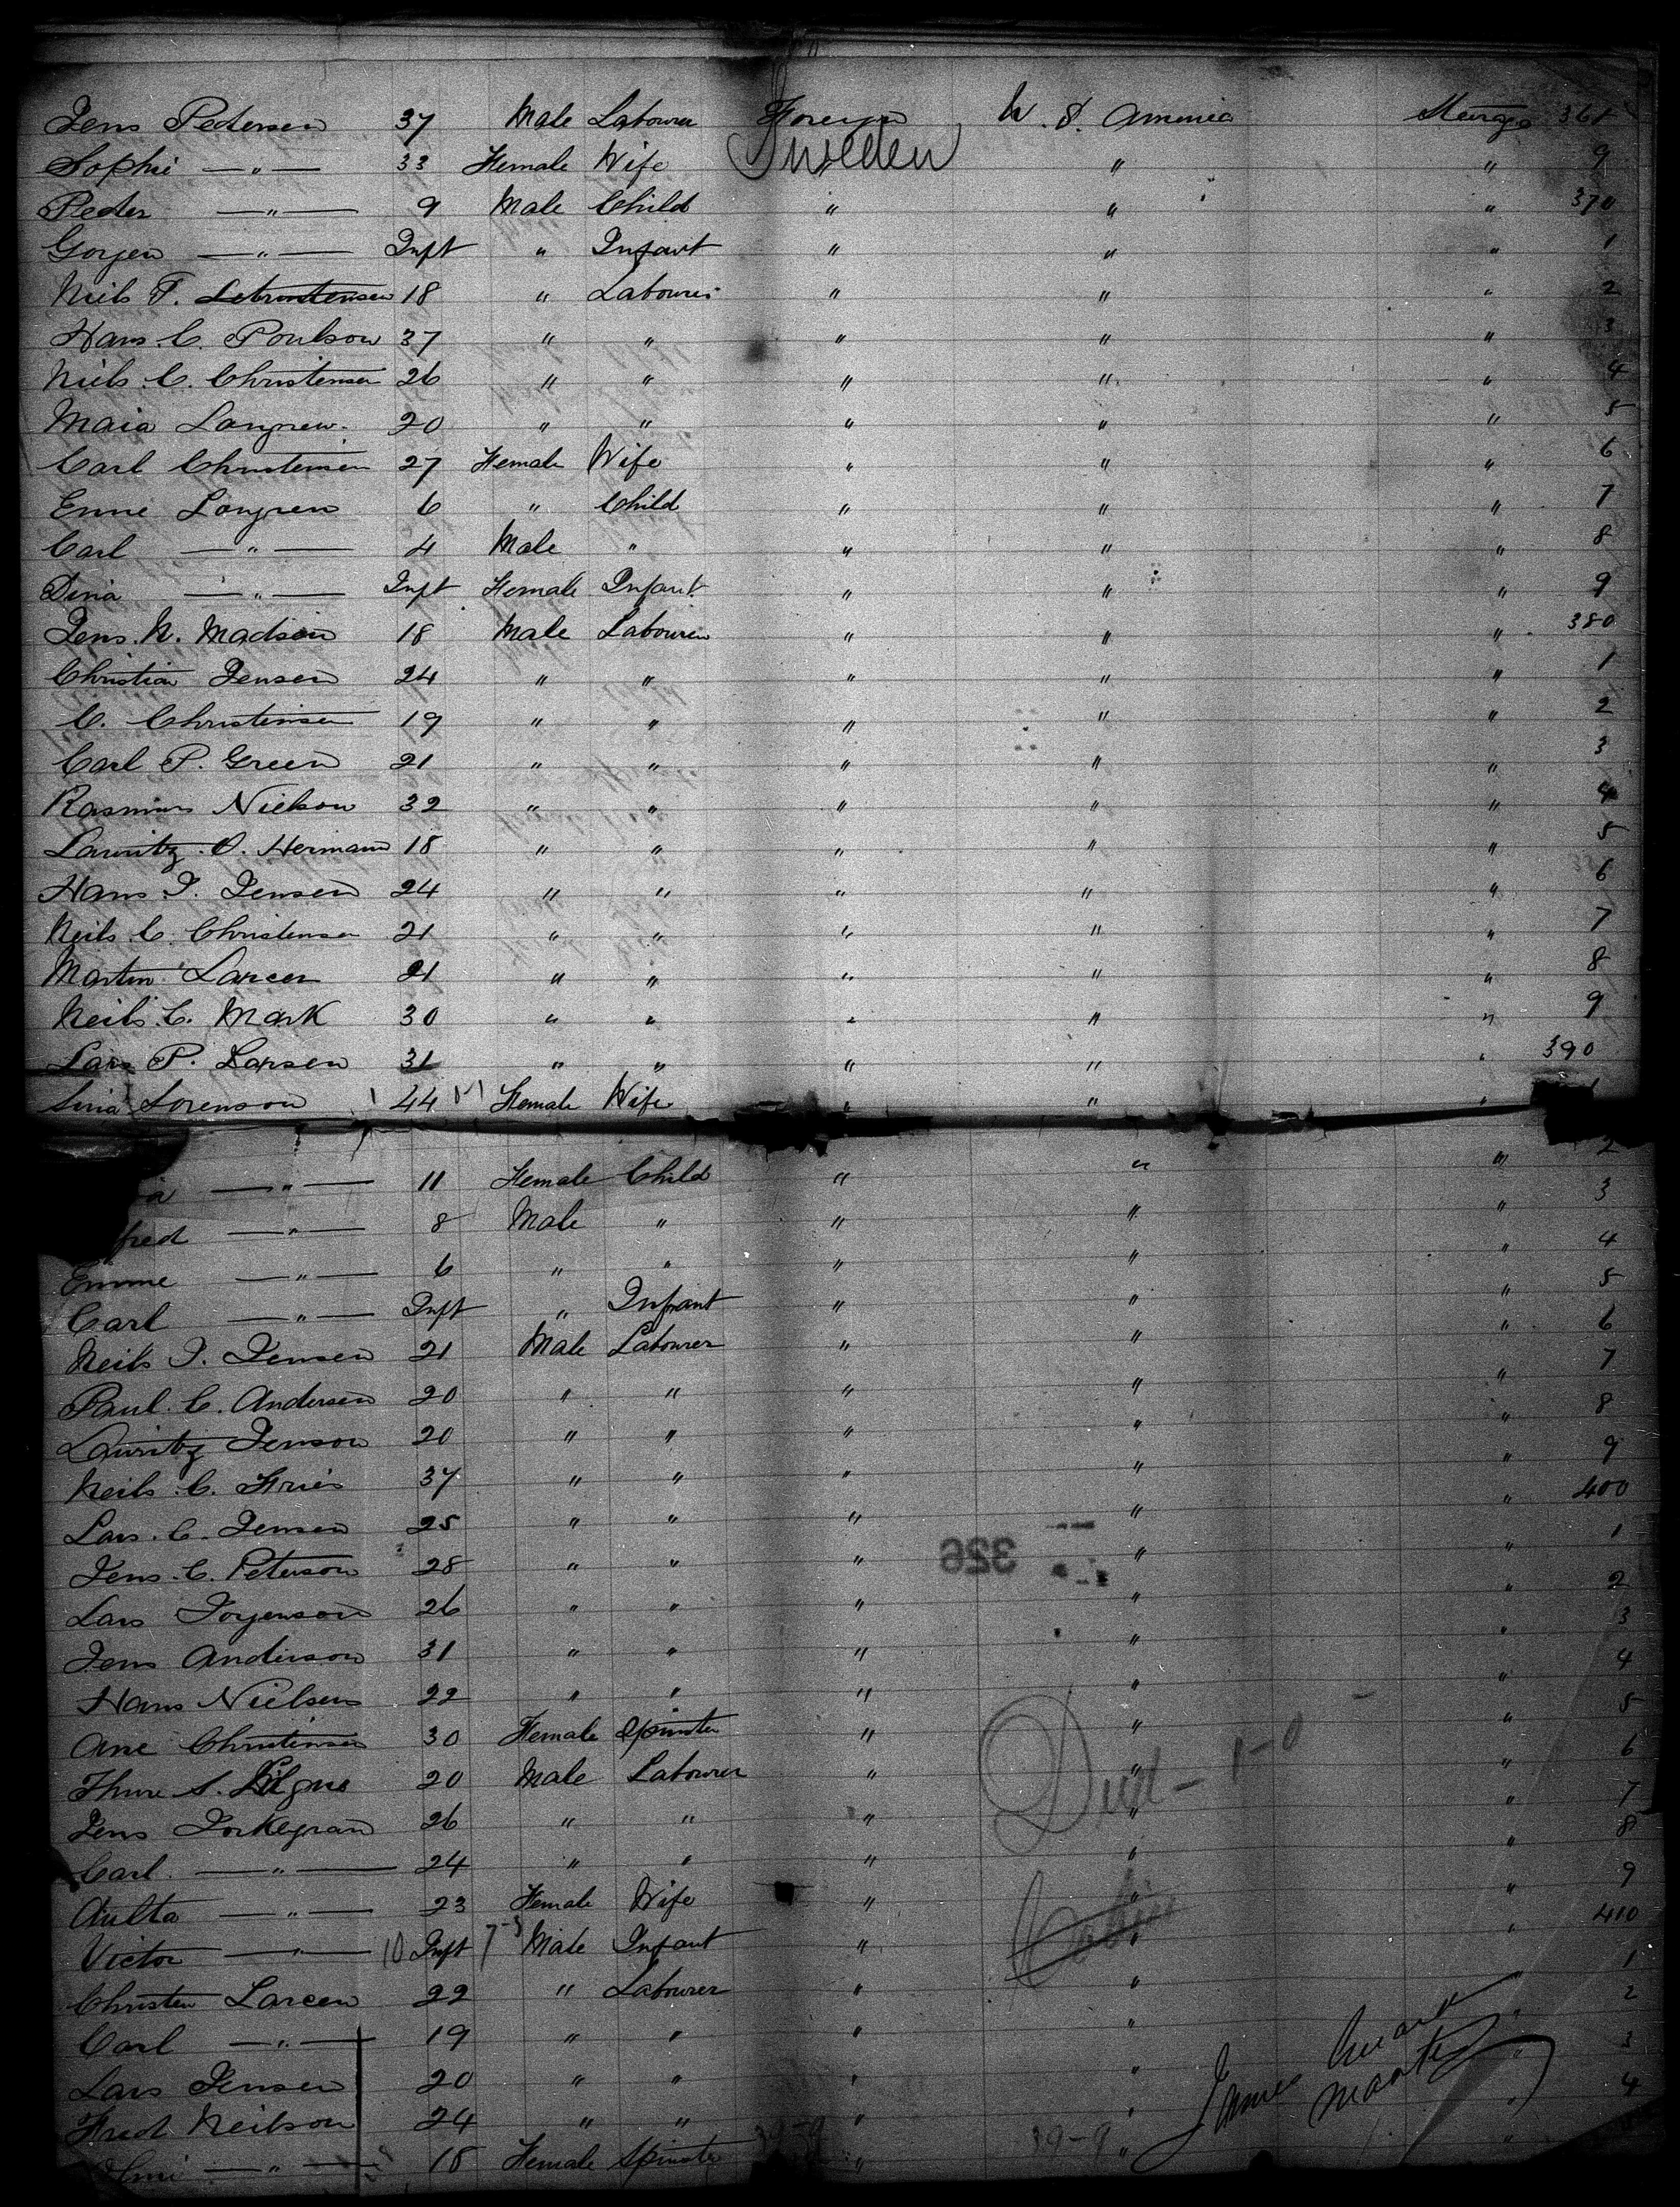 Jens Pedersen 37 Male Labourer Foreign U. S. America Steerage 368
Sophi — " — 33 Female Wife Sweden " " 9
Peder — " — 9 Male Child " " " 370
Gorgen — " — Inft " Infant " " " 1
Neils F. 18 " Labourer " " " 2
Hans. C. Poulson 37 " " " " " 3
Niels. C. Christensen 26 " " " " " 4
Maia Langrew. 20 " " " " " 5
Carl Christensen 27 Female Wife " " " 6
Enne Longren 6 " Child " " " 7
Carl — " — 4 Male " " " " 8
Dina — " — Inft Female Infant " " " 9
Jens. N. Madson 18 Male Labourer " " " 380
Christian Jensen 24 " " " " " 1
C. Christensen 19 " " " " " 2
Carl P. Green 21 " " " " " 3
Rasmus Nielson 32 " " " " " 4
Lauritz. O. Hermann 18 " " " " " 5
Hans J. Jensen 24 " " " " " 6
Neils. C. Christensen 21 " " " " " 7
Martin Larcen 21 " " " " " 8
Neils. C. Mark 30 " " " " " 9
Lars P. Larsen 31 " " " " " 390
Sina Sorenson 44 Female Wife " " "
a — " — 11 Female Child " " " 2
fred — " — 8 Male " " " " 3
Emme — " — 6 " " " " " 4
Carl — " — Inft " Infant " " " 5
Neils J. Jensen 21 Male Labourer " " " 6
Paul. C. Andersen 20 " " " " " 7
Lauritz Jenson 20 " " " " " 8
Neils. C. Friis 37 " " " " " 9
Lars. C. Jensen 25 " " " " " 400
Jens. C. Peterson 28 " " " " " 1
326
Lars Jorgenson 26 " " " " " 2
Jens Anderson 31 " " " " " 3
Hans Nielsen 22 " " " " " 4
Ane Christensen 30 Female Spinster " " " 5
Thure S. 20 Male Labourer " " " 6
Jens Torkegran 26 " " " " " 7
Carl. — " — 24 " " " " " 8
Aulta — " — 23 Female Wife " " " 9
Victor — " — 10 Inft Male Infant " " " 410
Christen Larcen 22 " Labourer " " " 1
Carl — " — 19 " " " " " 2
Lars Jensen 20 " " " " " 3
Fred Neilson 24 " " " " " 4
— " — 18 Female Spinster " "
39-9
James